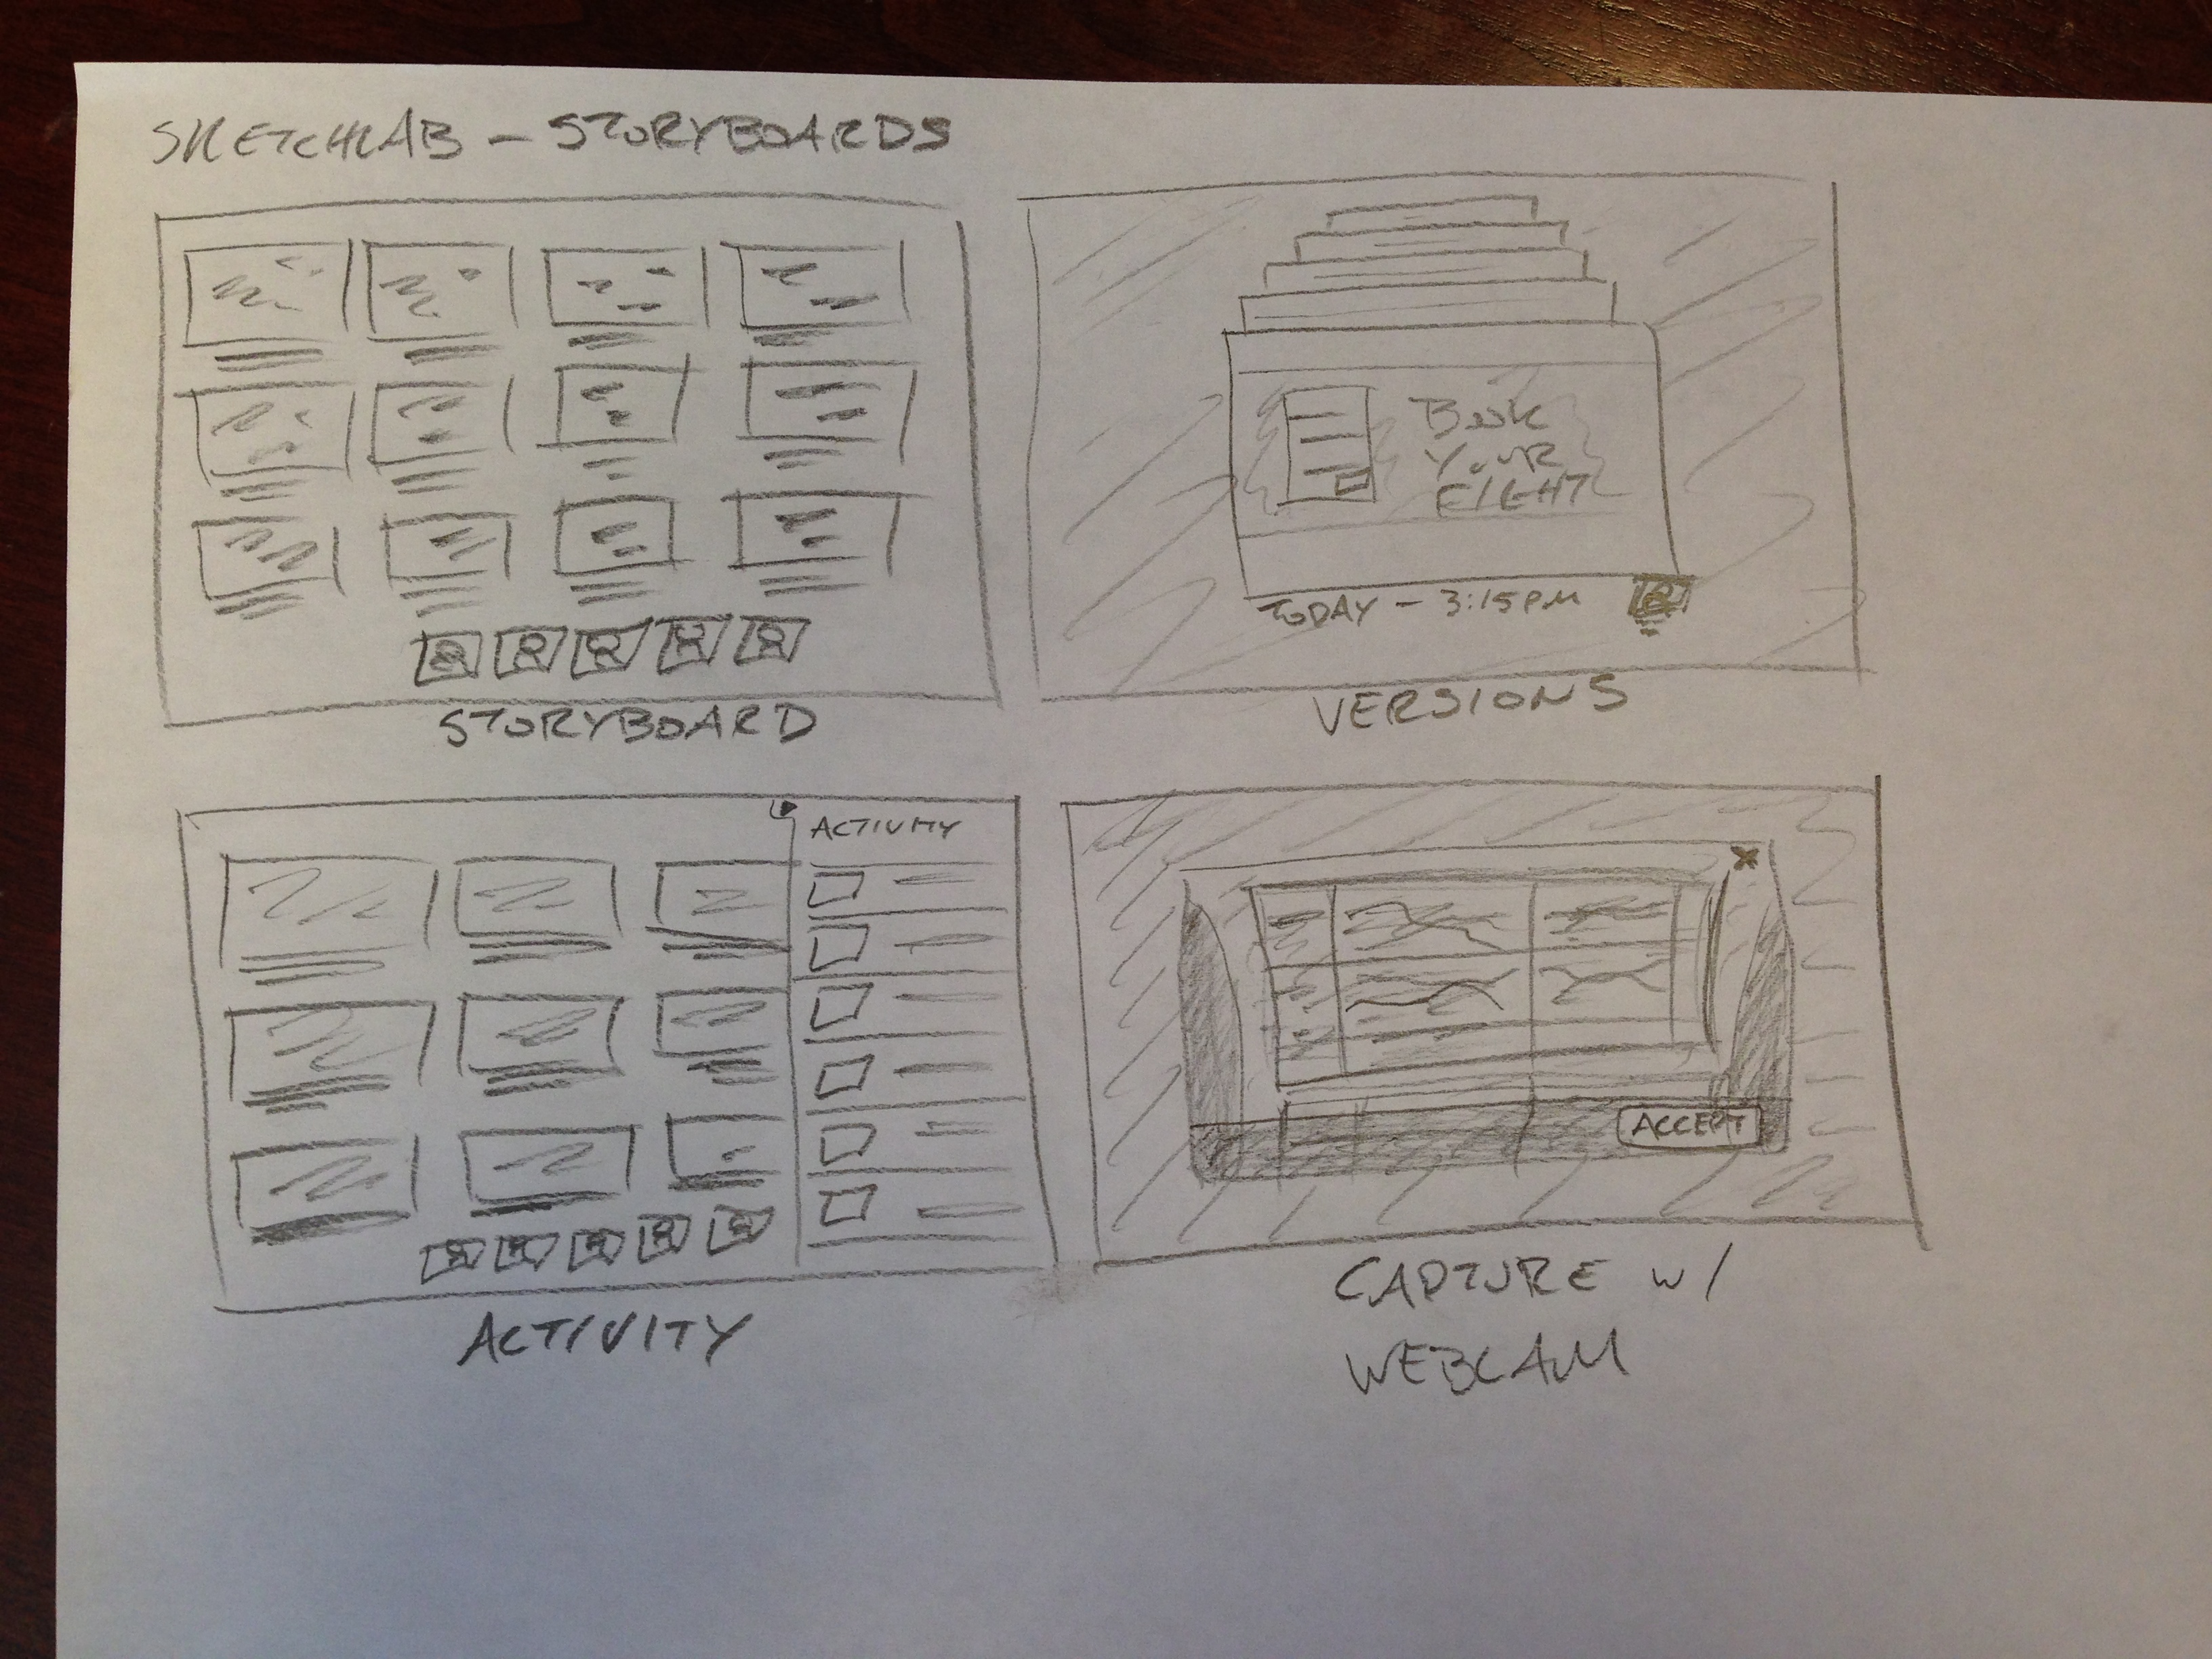 SKETCHLAB - STORYBOARDS
STORYBOARD
Book
YOUR
FLIGHT
TODAY - 3:15PM
VERSIONS
ACTIVITY
ACTIVITY
ACCEPT
CAPTURE w/
WEBCAM